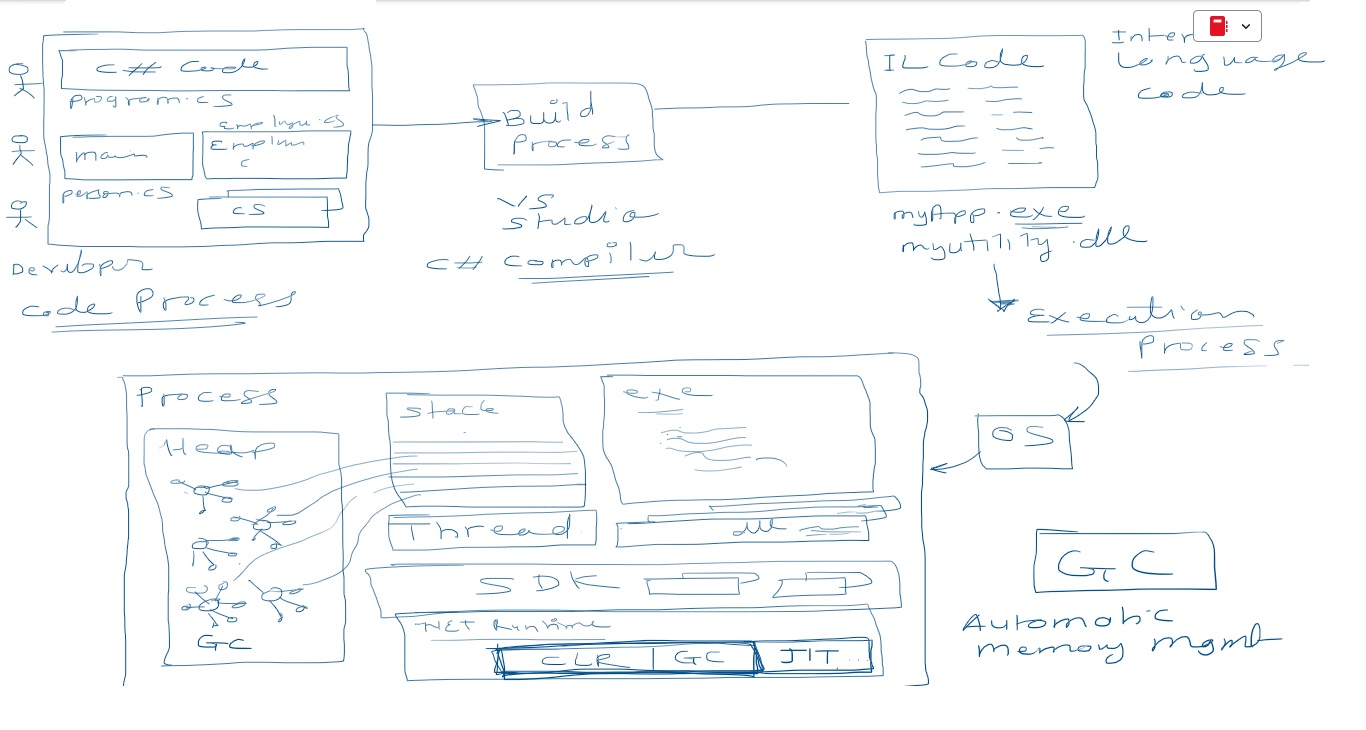 C# Code
program.cs
Employee.cs
main
Employee
C
person.cs
CS
Developer
Code Process
Build
Process
VS
Studio
C# Compiler
IL Code
Inter
Language
code
myApp.exe
myutility.dll
Execution
Process
OS
Process
Heap
GC
Stack
Thread
exe
dll
SDK
.NET Runtime
CLR
GC
JIT...
GC
Automatic
memory mgmt